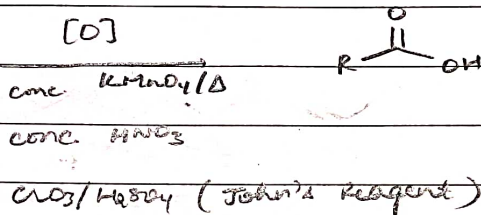 [O]
conc. KMnO4/Δ
conc. HNO3
CrO3/H2SO4 (John's Reagent)
O
R
OH